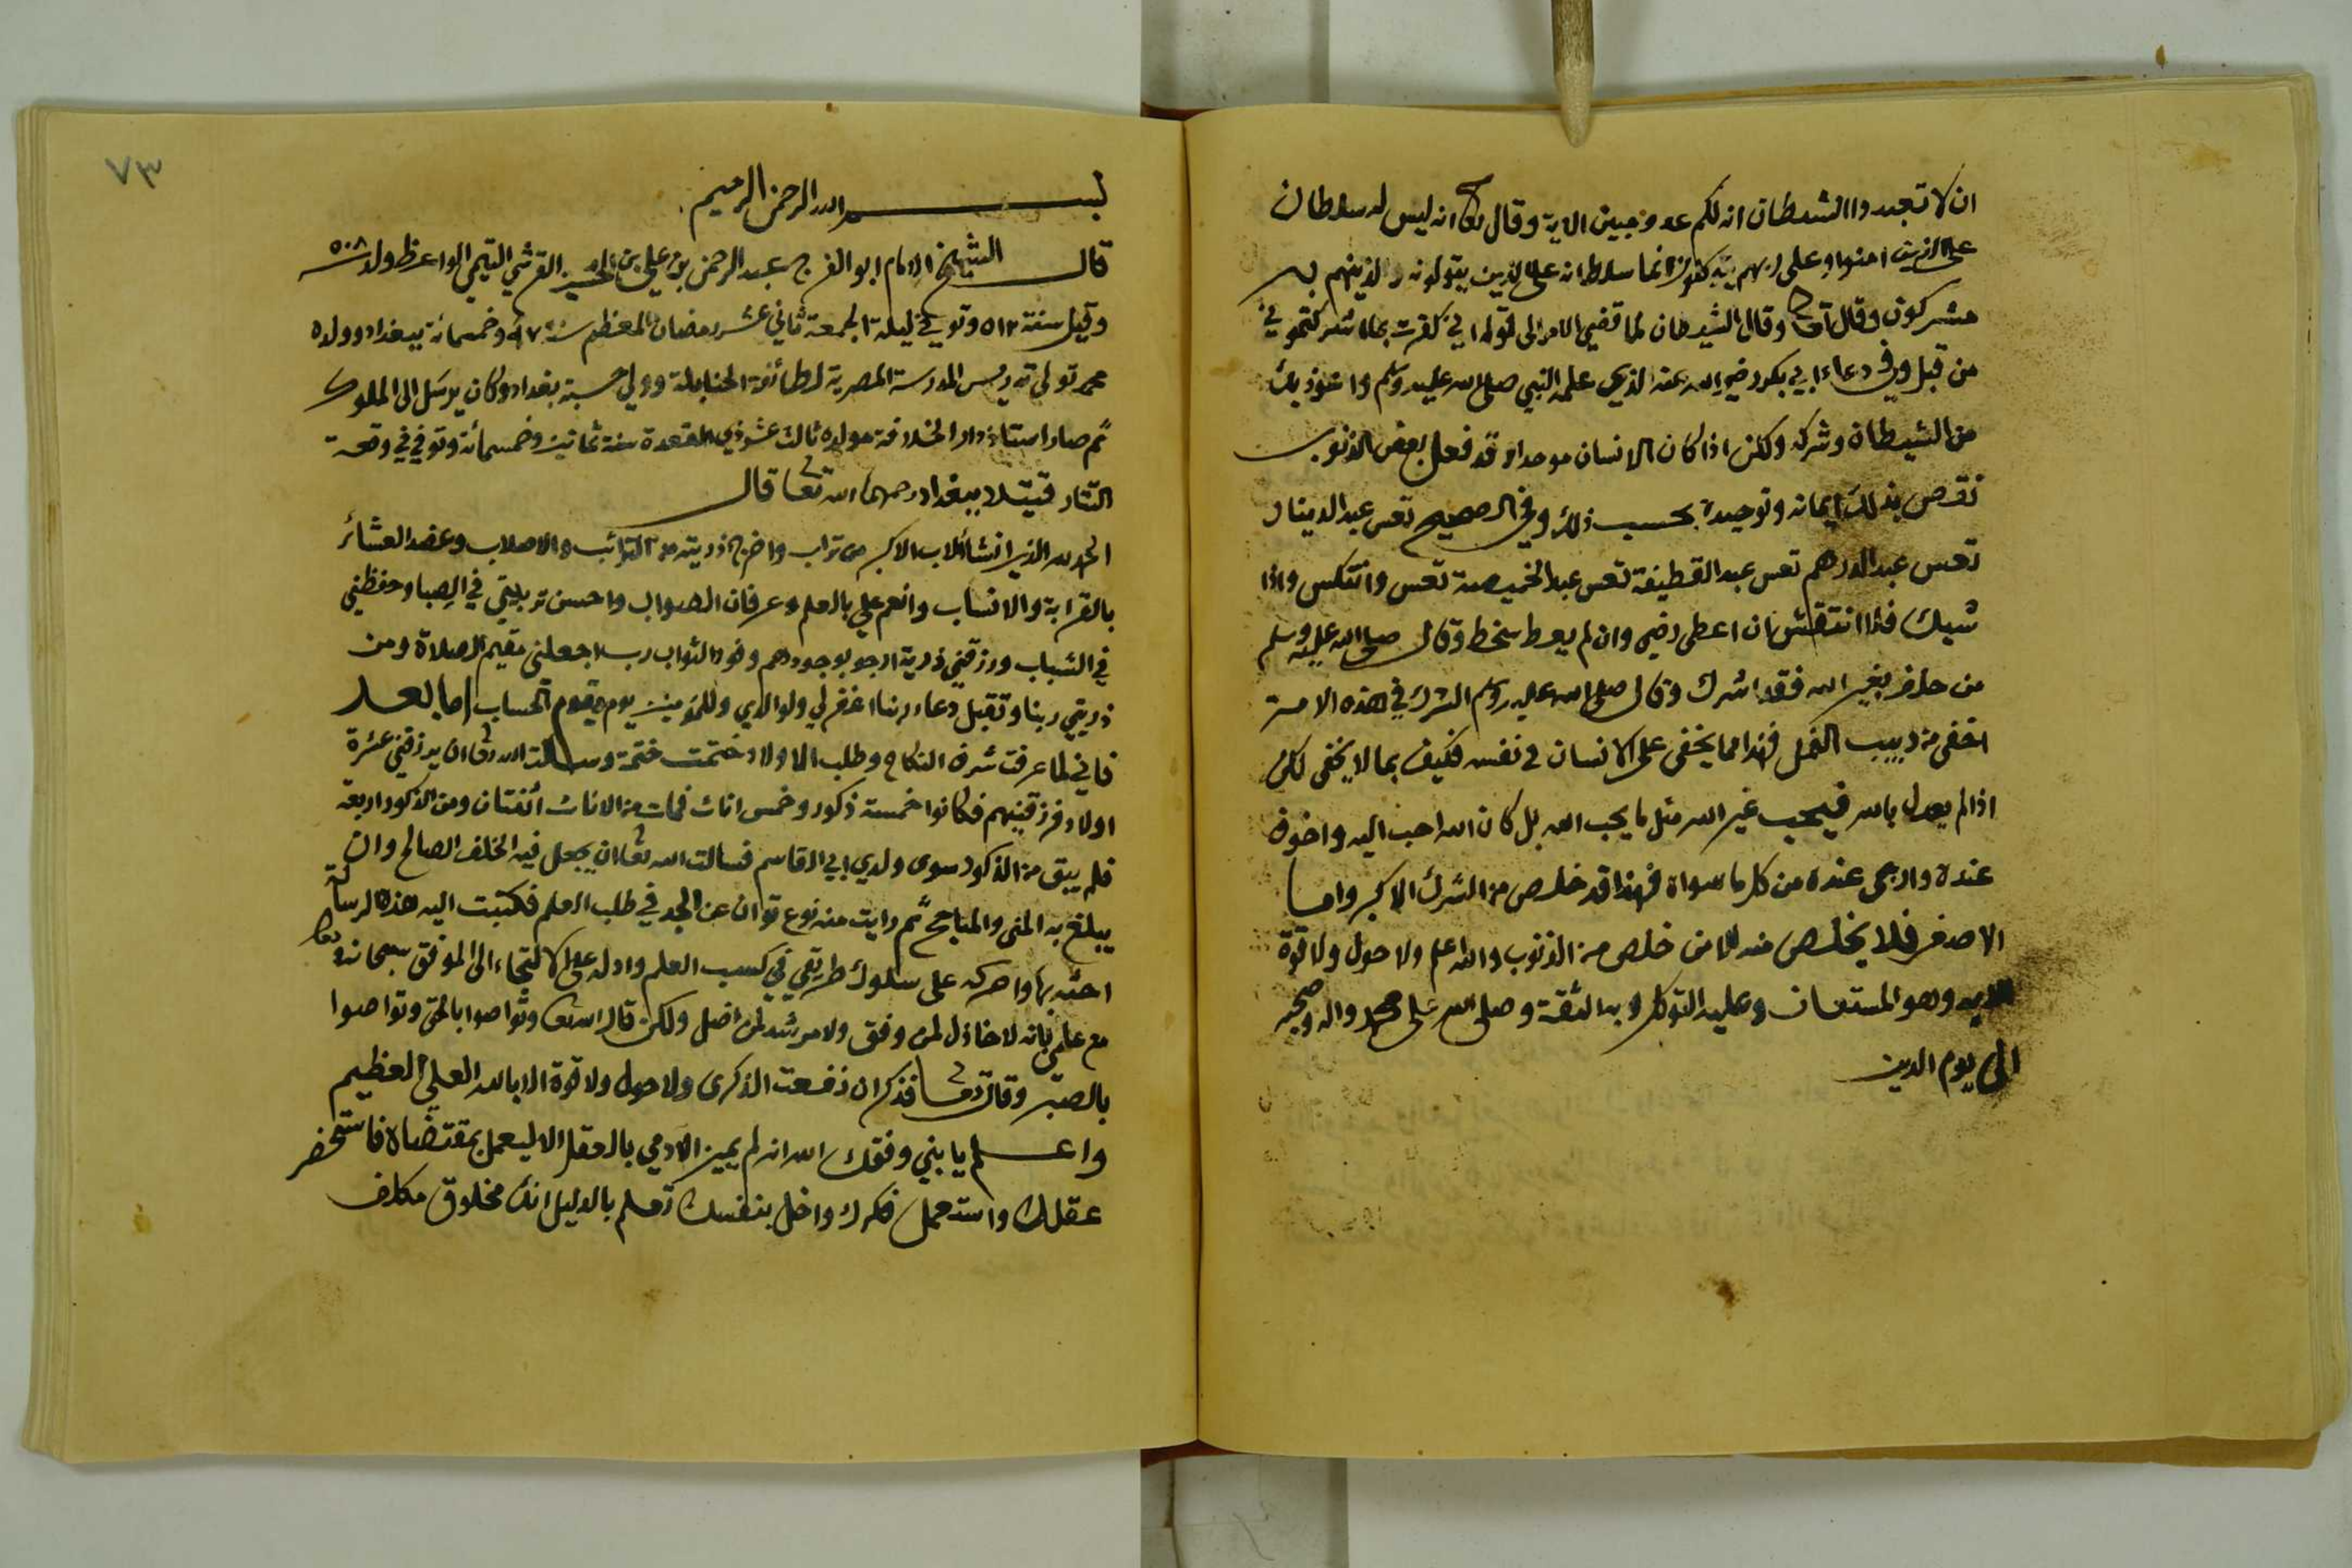 ان لا تعبدوا الشيطان انه لكم عدو مبين الاية وقال تعا انه ليس له سلطان
على الذين امنوا وعلى ربهم يتوكلون انما سلطانه على الذين يتولونه والذينهم به
مشركون وقال تعا وقال الشيطان لما قضي الامر الى قوله اني كفرت بما اشركتموني
من قبل وفي دعاء ابي بكر رضي الله عنه الذي علمه النبي صلى الله عليه وسلم واعوذ بك
من الشيطان وشركه ولكن اذا كان الانسان موحدا وقد فعل بعض الذنوب
نقص بذلك ايمانه وتوحيده بحسب ذلك وفي الصحيح تعس عبد الدينار
تعس عبد الدرهم تعس عبد القطيفة تعس عبد الخميصة تعس وانتكس واذا
شيك فلا انتقش ان اعطى رضي وان لم يعط سخط وقال صلى الله عليه وسلم
من حلف بغير الله فقد اشرك وقال صلى الله عليه وسلم الشرك في هذه الامة
اخفى من دبيب النمل فهذا مما يخفى على الانسان في نفسه فكيف بما لا يخفى لكن
اذا لم يعدل بالله فيحب غير الله مثل ما يحب الله بل كان الله احب اليه واخوف
عنده وارجى عنده من كل ما سواه فهذا قد خلص من الشرك الاكبر واما
الاصغر فلا يخلص منه الا من خلص من الذنوب والله اعلم ولا حول ولا قوة
الا به وهو المستعان وعليه التوكل وبه الثقة وصلى الله على محمد واله وصحبه
الى يوم الدين
٧٣
بسم الله الرحمن الرحيم
قال الشيخ الامام ابو الفرج عبد الرحمن بن علي بن القرشي التيمي الواعظ ولد سنة ٥٠٨
وقيل سنة ٥١٢ وتوفي ليلة الجمعة ثاني عشر رمضان المعظم سنة ٩٧ وخمسمائة ببغداد وولده
محمد تولى تدريس المدرسة المصرية لطائفة الحنابلة وولي حسبة بغداد وكان يرسل الى الملوك
ثم صار استاذ دار الخلافة مولده ثالث عشر ذي القعدة سنة ثمانين وخمسمائة وتوفي في وقعة
التتار قتيلا ببغداد رحمهما الله تعا قال
الحمد لله الذي انشأ الاب الاكبر من تراب واخرج ذريته من الترائب والاصلاب وعضد العشائر
بالقرابة والانساب وانعم علي بالعلم وعرفان الصواب واحسن تربيتي في الصبا وحفظني
في الشباب ورزقني ذرية ارجو بوجودهم وفور الثواب رب اجعلني مقيم الصلاة ومن
ذريتي ربنا وتقبل دعاء ربنا اغفر لي ولوالدي وللمؤمنين يوم يقوم الحساب اما بعد
فاني لما عرفت شرف النكاح وطلب الاولاد ختمت ختمة وسالت الله تعا ان يرزقني عشرة
اولاد فرزقنيهم فكانوا خمسة ذكور وخمس اناث فمات من الاناث اثنتان ومن الذكور اربعة
فلم يبق من الذكور سوى ولدي ابي القاسم فسالت الله تعا ان يجعل فيه الخلف الصالح وان
يبلغ به المنى والمناجح ثم رايت منه نوع توان عن الجد في طلب العلم فكتبت اليه هذه الرسالة
احثه بها واحركه على سلوك طريقي في كسب العلم وادله على الالتجاء الى الموفق سبحانه وتعا
مع علمي بانه لا خاذل لمن وفق ولا مرشد لمن اضل ولكن قال الله تعا وتواصوا بالحق وتواصوا
بالصبر وقال تعا فذكر ان نفعت الذكرى ولا حول ولا قوة الا بالله العلي العظيم
واعلم يا بني وفقك الله انه لم يميز الآدمي بالعقل الا ليعمل بمقتضاه فاستحضر
عقلك واستعمل فكرك واخل بنفسك تعلم بالدليل انك مخلوق مكلف